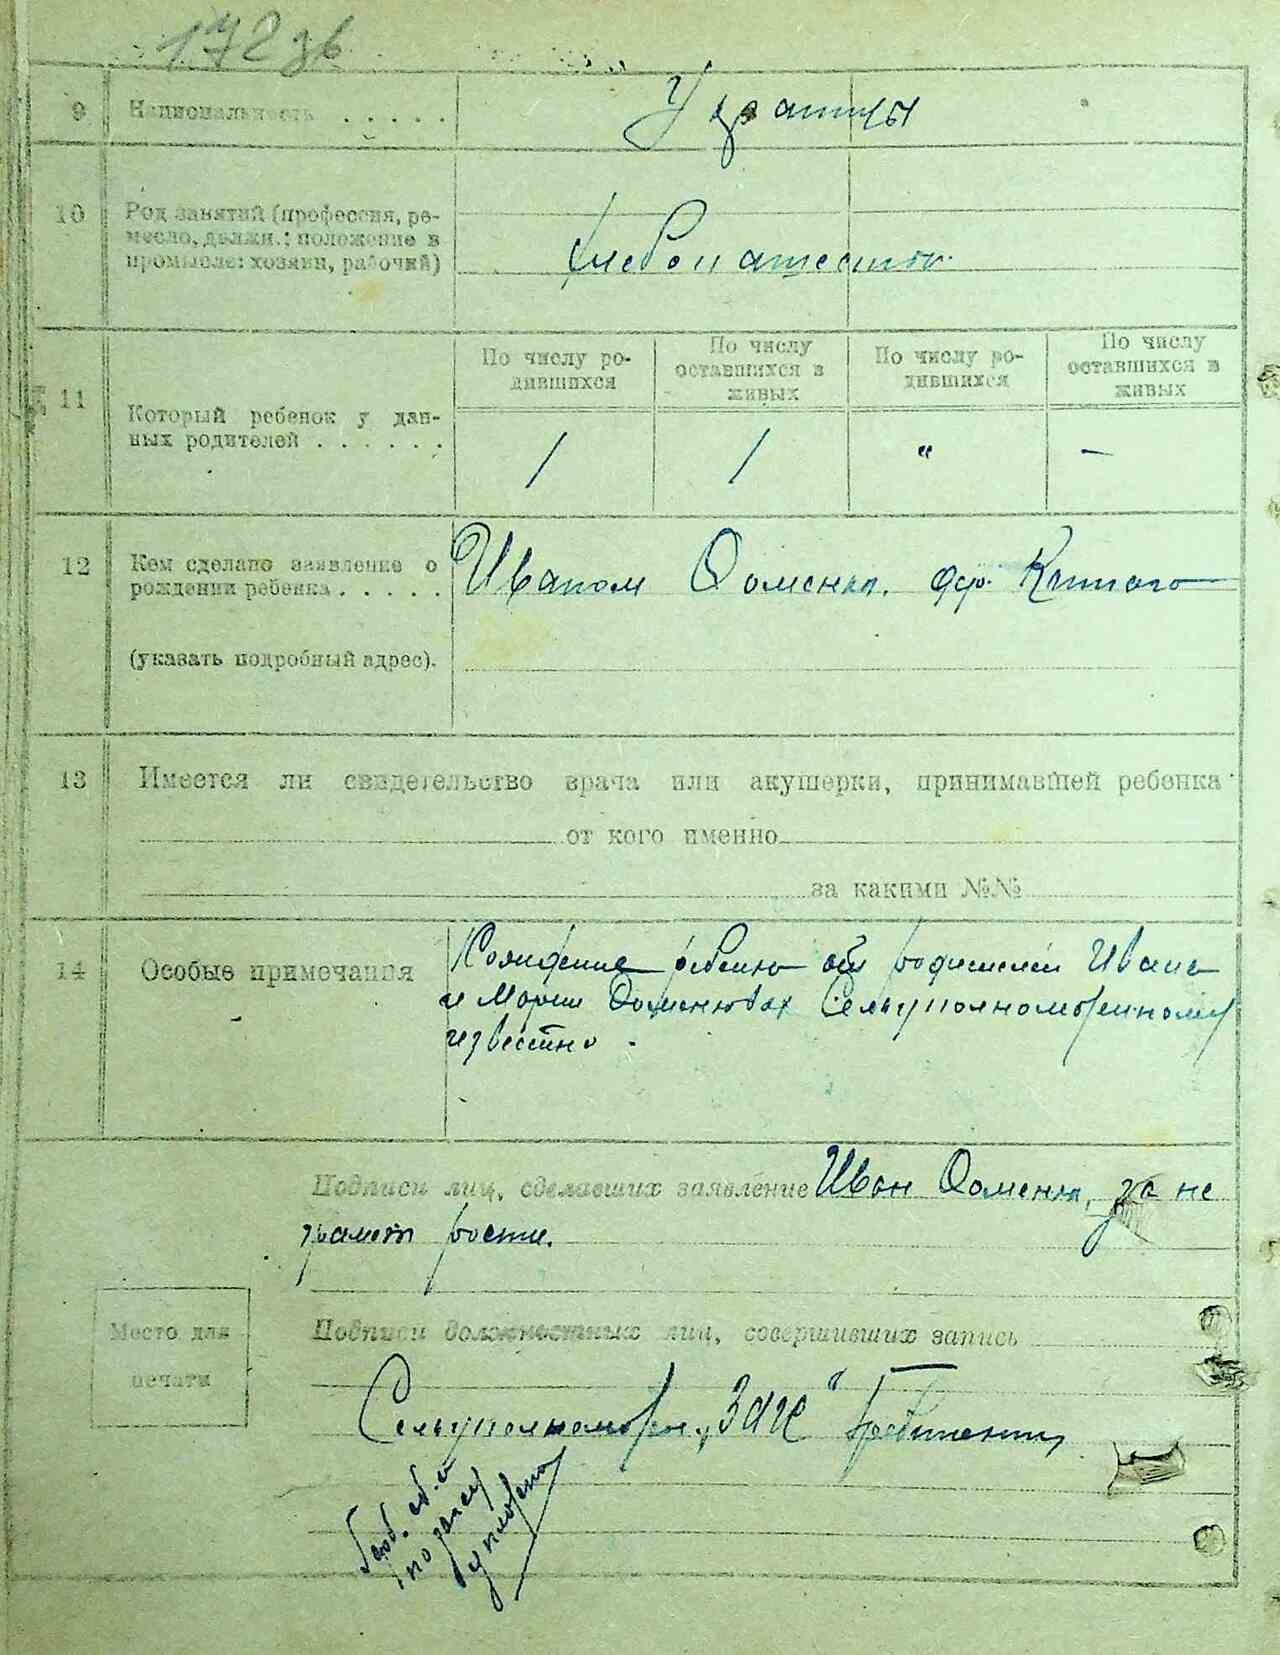 172 зв
9 Национальность . . . . .
Украинцы
10 Род занятий (профессия, ре-
месло, должн.: положение в
промысле: хозяин, рабочий)
Хлебопашество
По числу ро-
дившихся
По числу
оставшихся в
живых
По числу ро-
дившихся
По числу
оставшихся в
живых
11 Который ребенок у дан-
ных родителей . . . . . .
1 1 " -
12 Кем сделано заявление о
рождении ребенка . . . . .
Иваном Доменюк.
(указать подробный адрес).
13 Имеется ли свидетельство врача или акушерки, принимавшей ребенка
от кого именно
за какими №№
14 Особые примечания
Рождение ребенка от родителей Ивана
и Марии Доменюках Сельуполномоченному
известно.
Подписи лиц, сделавших заявление Иван Доменюк, за не
грамот роспис.
Место для
печати
Подписи должностных лиц, совершивших запись
Сельуполномочен. „ЗАГС"
сб. и
по загсу
уплочено